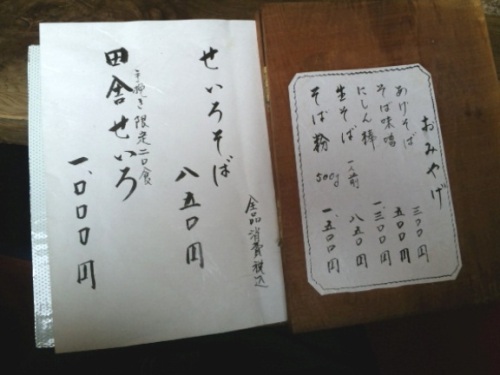 おみやげ
あげそば 三〇〇円
そば味噌 五〇〇円
にしん棒 一、三〇〇円
生そば 一人前 八五〇円
そば粉 500g 一、五〇〇円
全品消費税込
せいろそば 八五〇円
田舎せいろ 一、〇〇〇円
手挽き 限定二〇食